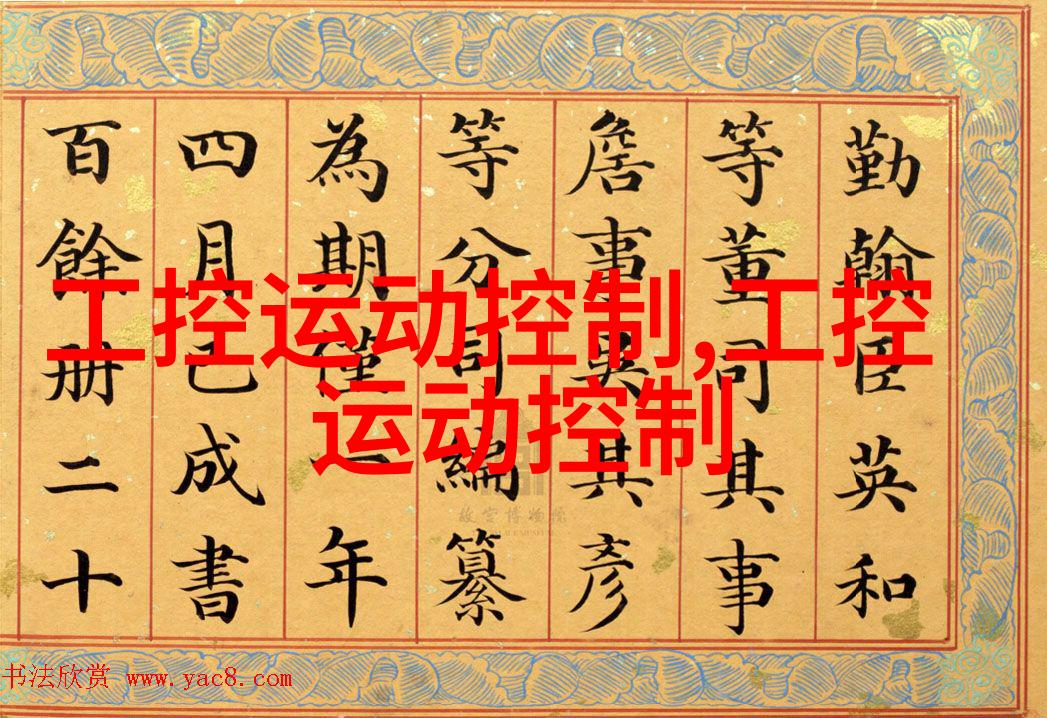 勤翰臣英和
等董司其事
詹事吳其彥
等分司編纂
為期僅一年
四月已成書
百餘册二十
工控运动控制,工控
运动控制
故宫博物院
书法欣赏 www.yac8.com